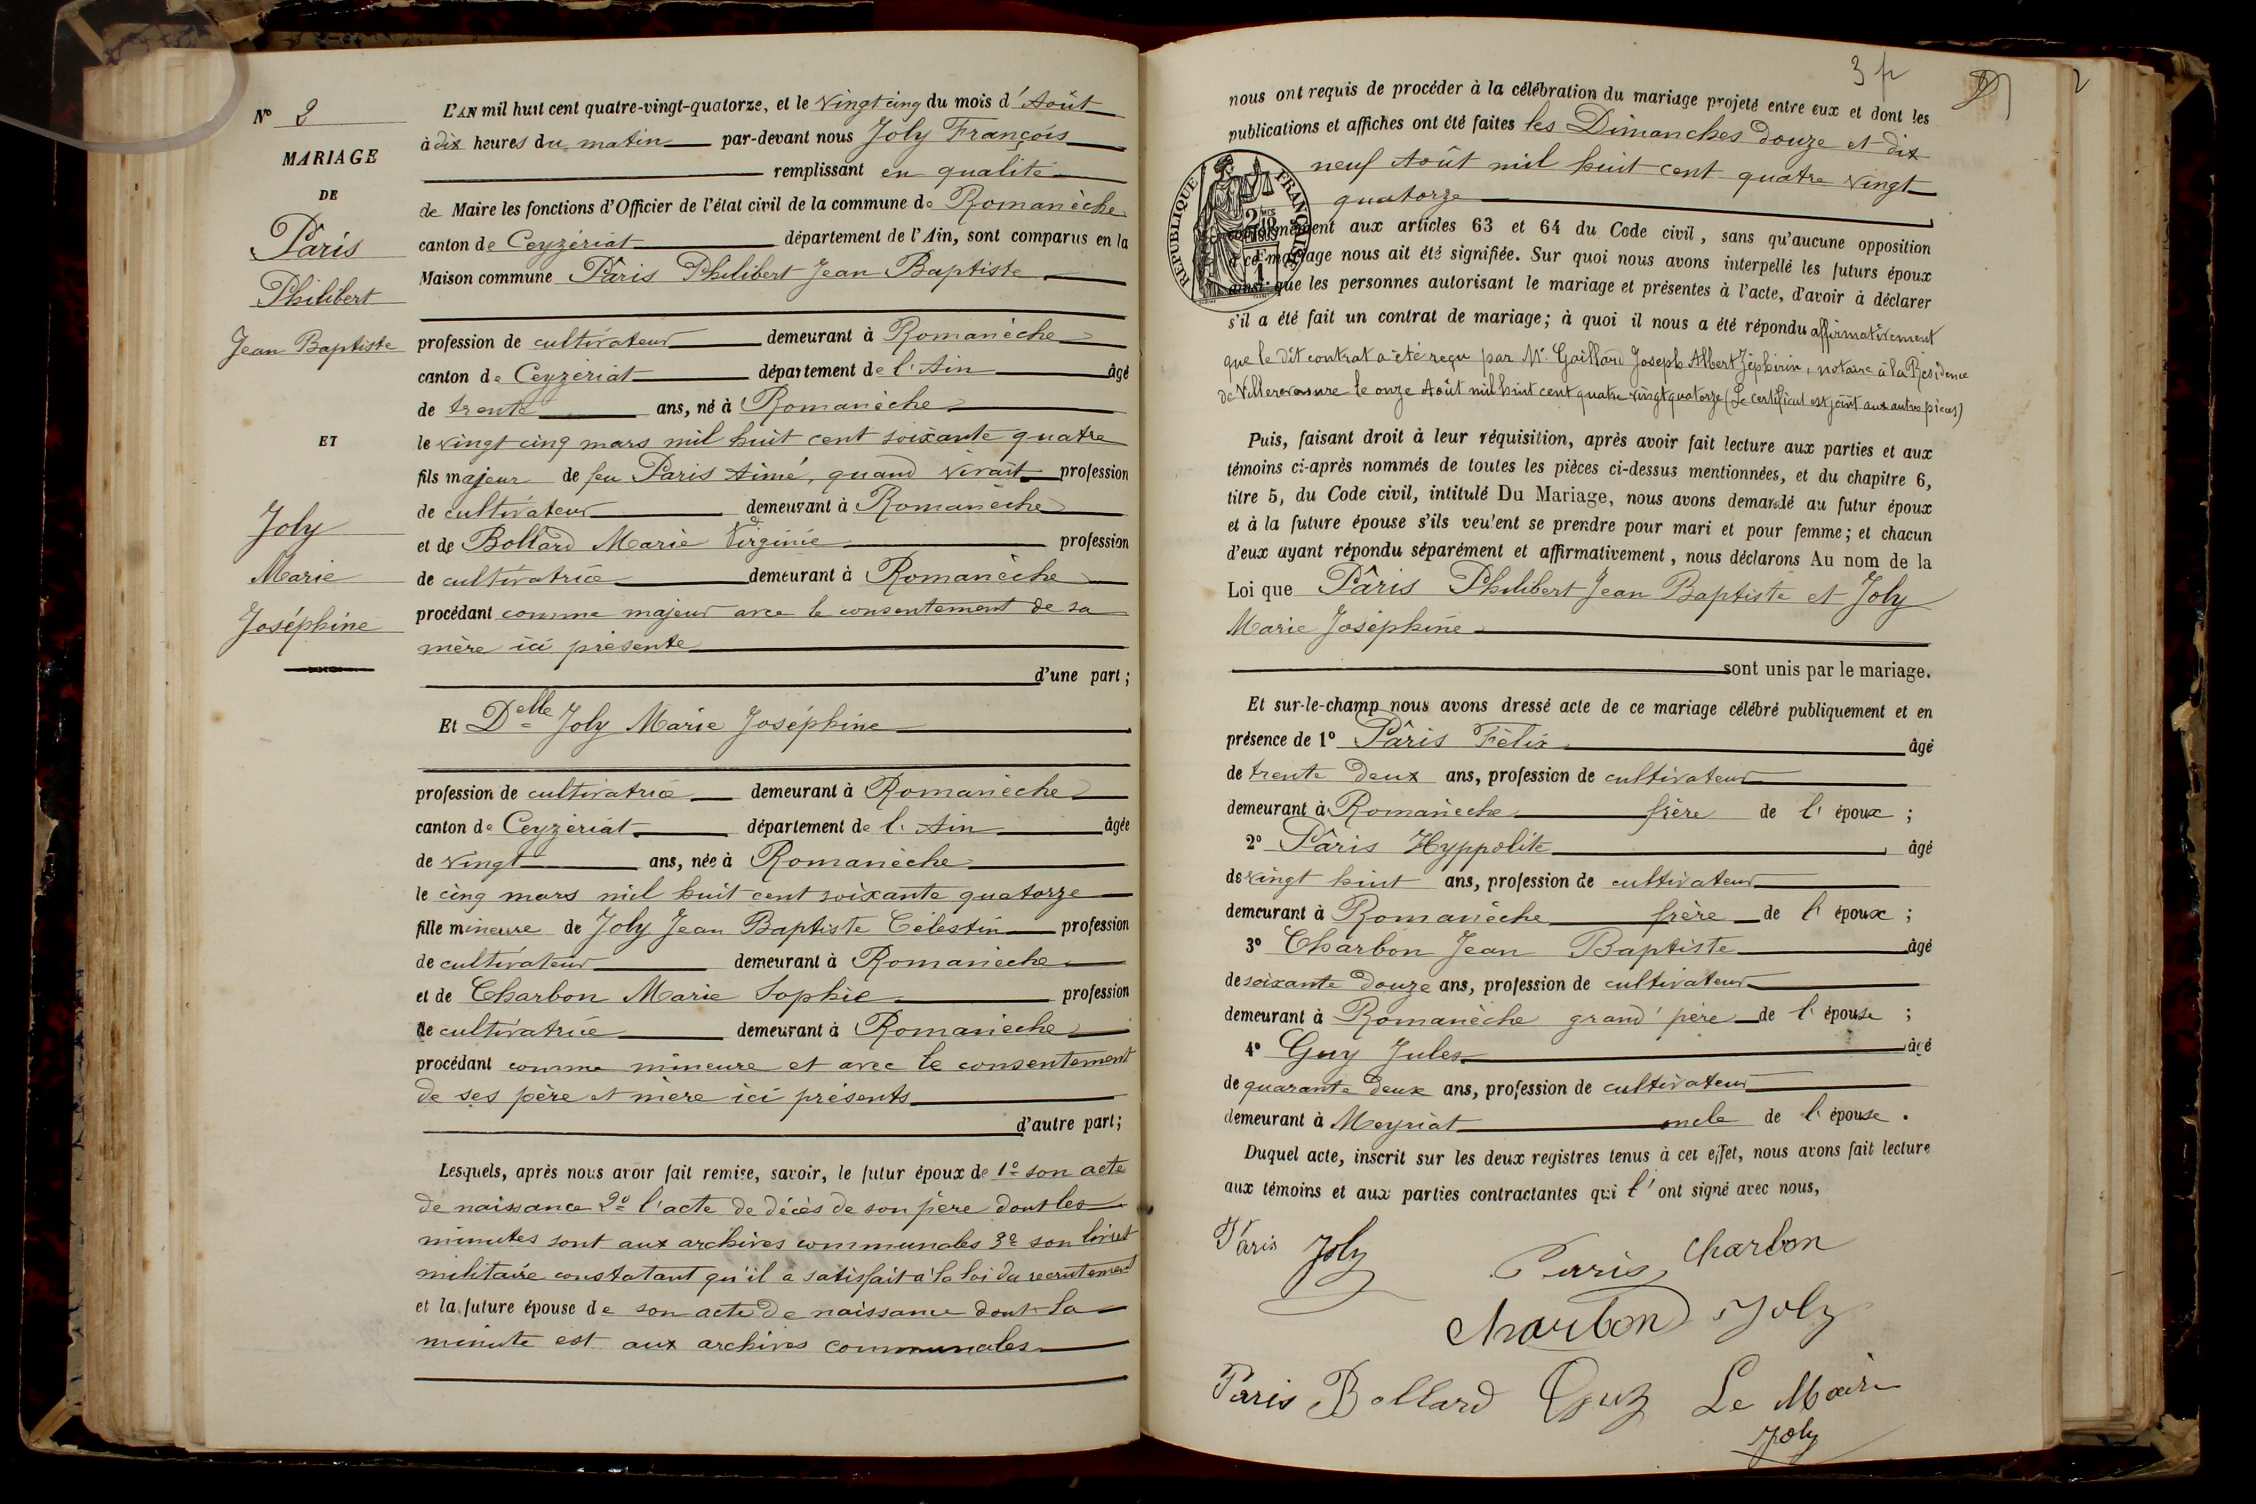 N° 2
MARIAGE
DE
Pâris
Philibert
Jean Baptiste
ET
Joly
Marie
Joséphine
L'AN mil huit cent quatre-vingt-quatorze, et le vingt cinq du mois d'Août
à dix heures du matin par-devant nous Joly François
remplissant en qualité
de Maire les fonctions d'Officier de l'état civil de la commune de Romanèche
canton de Ceyzériat département de l'Ain, sont comparus en la
Maison commune Pâris Philibert Jean Baptiste
profession de cultivateur demeurant à Romanèche
canton de Ceyzériat département de l'Ain âgé
de trente ans, né à Romanèche
le vingt cinq mars mil huit cent soixante quatre
fils majeur de feu Paris Aimé, quand vivait profession
de cultivateur demeurant à Romanèche
et de Bollard Marie Virginie profession
de cultivatrice demeurant à Romanèche
procédant comme majeur avec le consentement de sa
mère ici présente
d'une part ;
Et Delle Joly Marie Joséphine
profession de cultivatrice demeurant à Romanèche
canton de Ceyzériat département de l'Ain âgée
de vingt ans, née à Romanèche
le cinq mars mil huit cent soixante quatorze
fille mineure de Joly Jean Baptiste Célestin profession
de cultivateur demeurant à Romanèche
et de Charbon Marie Sophie profession
de cultivatrice demeurant à Romanèche
procédant comme mineure et avec le consentement
de ses père et mère ici présents
d'autre part ;
Lesquels, après nous avoir fait remise, savoir, le futur époux de 1° son acte
de naissance 2° l'acte de décès de son père dont les
minutes sont aux archives communales 3° son livret
militaire constatant qu'il a satisfait à la loi du recrutement
et la future épouse de son acte de naissance dont la
minute est aux archives communales
3 p
nous ont requis de procéder à la célébration du mariage projeté entre eux et dont les
publications et affiches ont été faites les Dimanches douze et dix
neuf Août mil huit cent quatre vingt
quatorze
REPUBLIQUE FRANÇAISE
conformément aux articles 63 et 64 du Code civil, sans qu'aucune opposition
à ce mariage nous ait été signifiée. Sur quoi nous avons interpellé les futurs époux
ainsi que les personnes autorisant le mariage et présentes à l'acte, d'avoir à déclarer
s'il a été fait un contrat de mariage ; à quoi il nous a été répondu affirmativement
que le dit contrat a été reçu par Mr Gaillard Joseph Albert Zéphirin, notaire à la Résidence
de Villereversure le onze Août mil huit cent quatre vingt quatorze (Le certificat est joint aux autres pièces)
Puis, faisant droit à leur réquisition, après avoir fait lecture aux parties et aux
témoins ci-après nommés de toutes les pièces ci-dessus mentionnées, et du chapitre 6,
titre 5, du Code civil, intitulé Du Mariage, nous avons demandé au futur époux
et à la future épouse s'ils veulent se prendre pour mari et pour femme ; et chacun
d'eux ayant répondu séparément et affirmativement, nous déclarons Au nom de la
Loi que Pâris Philibert Jean Baptiste et Joly
Marie Joséphine
sont unis par le mariage.
Et sur-le-champ nous avons dressé acte de ce mariage célébré publiquement et en
présence de 1° Pâris Félix âgé
de trente deux ans, profession de cultivateur
demeurant à Romanèche frère de l'époux ;
2° Pâris Hyppolite âgé
de vingt huit ans, profession de cultivateur
demeurant à Romanèche frère de l'époux ;
3° Charbon Jean Baptiste âgé
de soixante douze ans, profession de cultivateur
demeurant à Romanèche grand'père de l'épouse ;
4° Guy Jules âgé
de quarante deux ans, profession de cultivateur
demeurant à Meyriat oncle de l'épouse.
Duquel acte, inscrit sur les deux registres tenus à cet effet, nous avons fait lecture
aux témoins et aux parties contractantes qui l'ont signé avec nous,
Paris Joly Paris Charbon
Charbon Joly
Paris Bollard Guy Le Maire
Joly